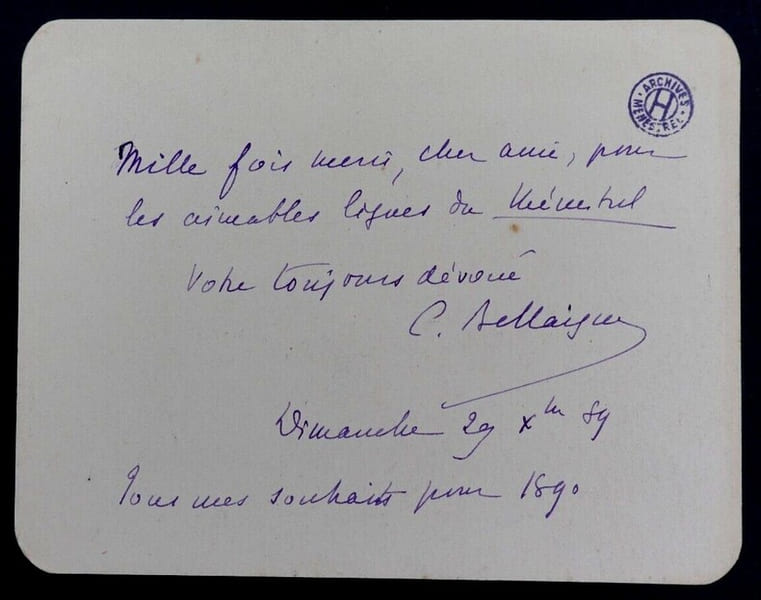 ARCHIVES
H
MENESTREL
Mille fois merci, cher ami, pour
les aimables lignes du Ménestrel
Votre toujours dévoué
C. Bellaigue
Dimanche 29 Xbre 89
Tous mes souhaits pour 1890